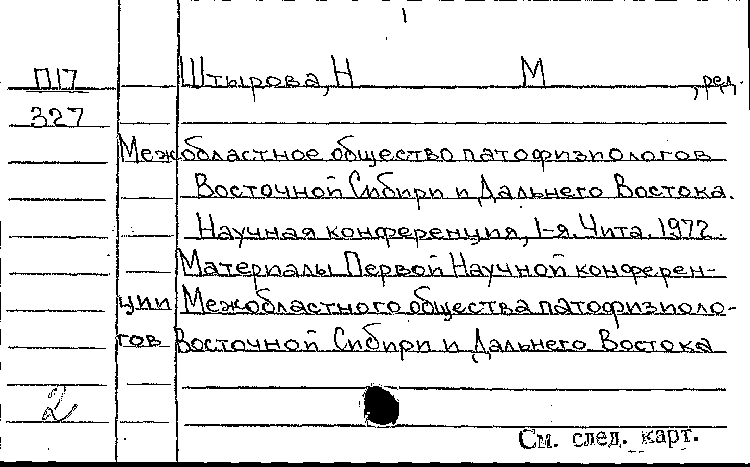 1
П17 Штырова, Н М , ред.
327
Межобластное общество патофизиологов
Восточной Сибири и Дальнего Востока.
Научная конференция, 1-я. Чита. 1972.
Материалы Первой Научной конферен-
ции Межобластного общества патофизиоло-
гов Восточной Сибири и Дальнего Востока
2
См. след. карт.